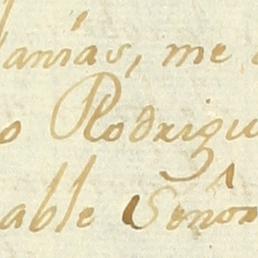 lanias, me
o Rodrigu
able Señor